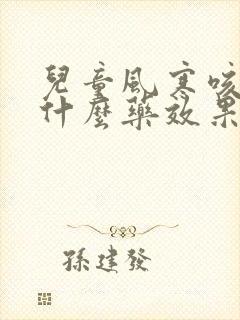 兒童風寒咳
什麼藥效果
孫建發